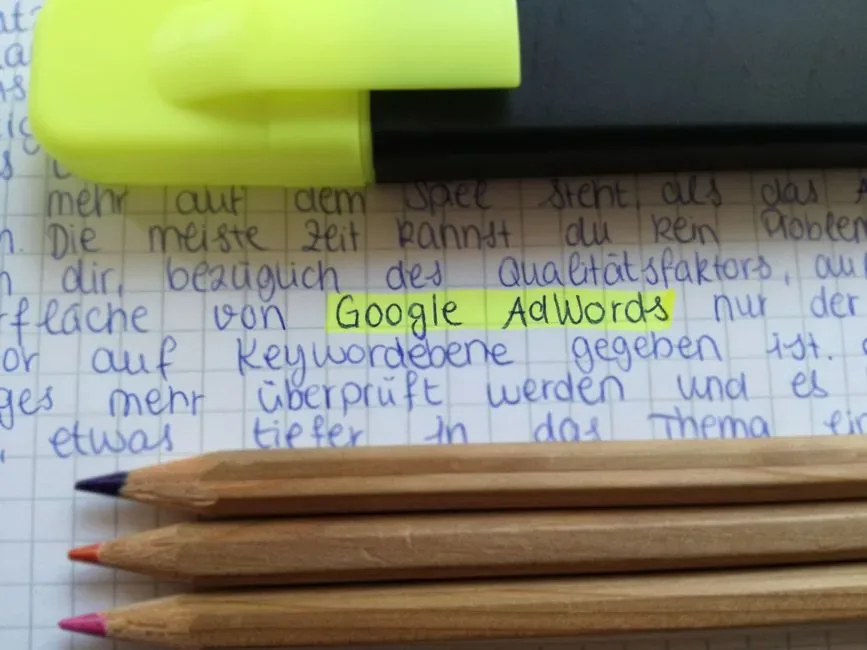 mehr auf dem Spiel steht, als das
Die meiste Zeit kannst du kein Problem
dir, bezüglich des Qualitätsfaktors, auf
von Google AdWords nur der
auf Keywordebene gegeben ist.
mehr überprüft werden und es
etwas tiefer in das Thema